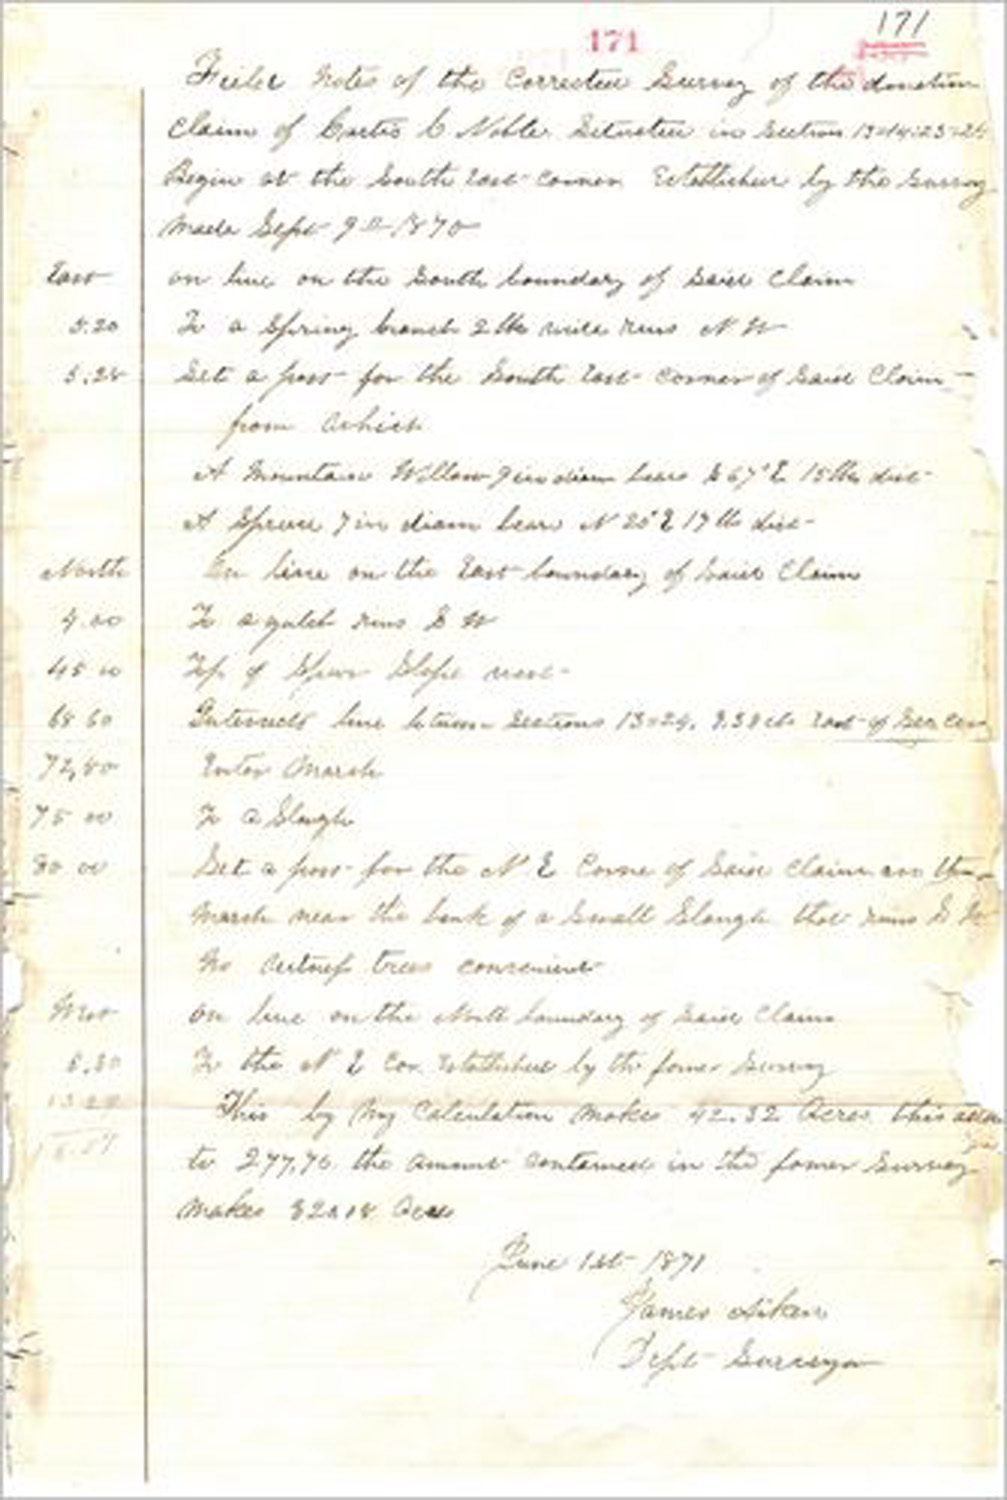 171
171
Field Notes of the Corrected Survey of the donation
Claim of Curtis C Noble Situated in Section 13=14=23=24
Begin at the South East corner Established by the Survey
made Sept 9th 1870
East on line on the South boundary of Said Claim
5.20 To a Spring branch 2 lks wide runs N W
5.28 Set a post for the South East corner of Said Claim
from which
A Mountain Willow 9 in diam bears S 67° E 15 lks dist
A Spruce 7 in diam bears N 25° E 17 lks dist
North On line on the East boundary of Said Claim
4.00 To a gulch runs S W
45 00 Top of Spur Slope west
68 60 Intersects line between Sections 13=24. East of Sec Cor
72,80 Enter Marsh
75 00 To a Slough
80 00 Set a post for the N E Corne of Said Claim on the
Marsh near the bank of a Small Slough that runs S
No witness trees convenient
West on line on the North boundary of Said Claim
5.30 To the N E Cor. Established by the former Survey
This by My Calculation makes 42.32 Acres this
to 277,76 the amount contained in the former Survey
makes Acres
June 1st 1871
James Aiken
Dept Surveyor